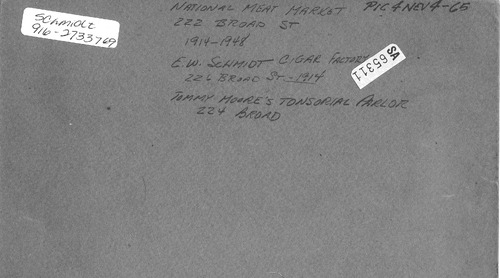 SCHMIDT
916-2733769
NATIONAL MEAT MARKET PIC 4 NEV 4-65
222 BROAD ST
1914-1948
E.W. SCHMIDT CIGAR FACTORY
226 BROAD ST.-1914
SA
65311
TOMMY MOORE'S TONSORIAL PARLOR
224 BROAD